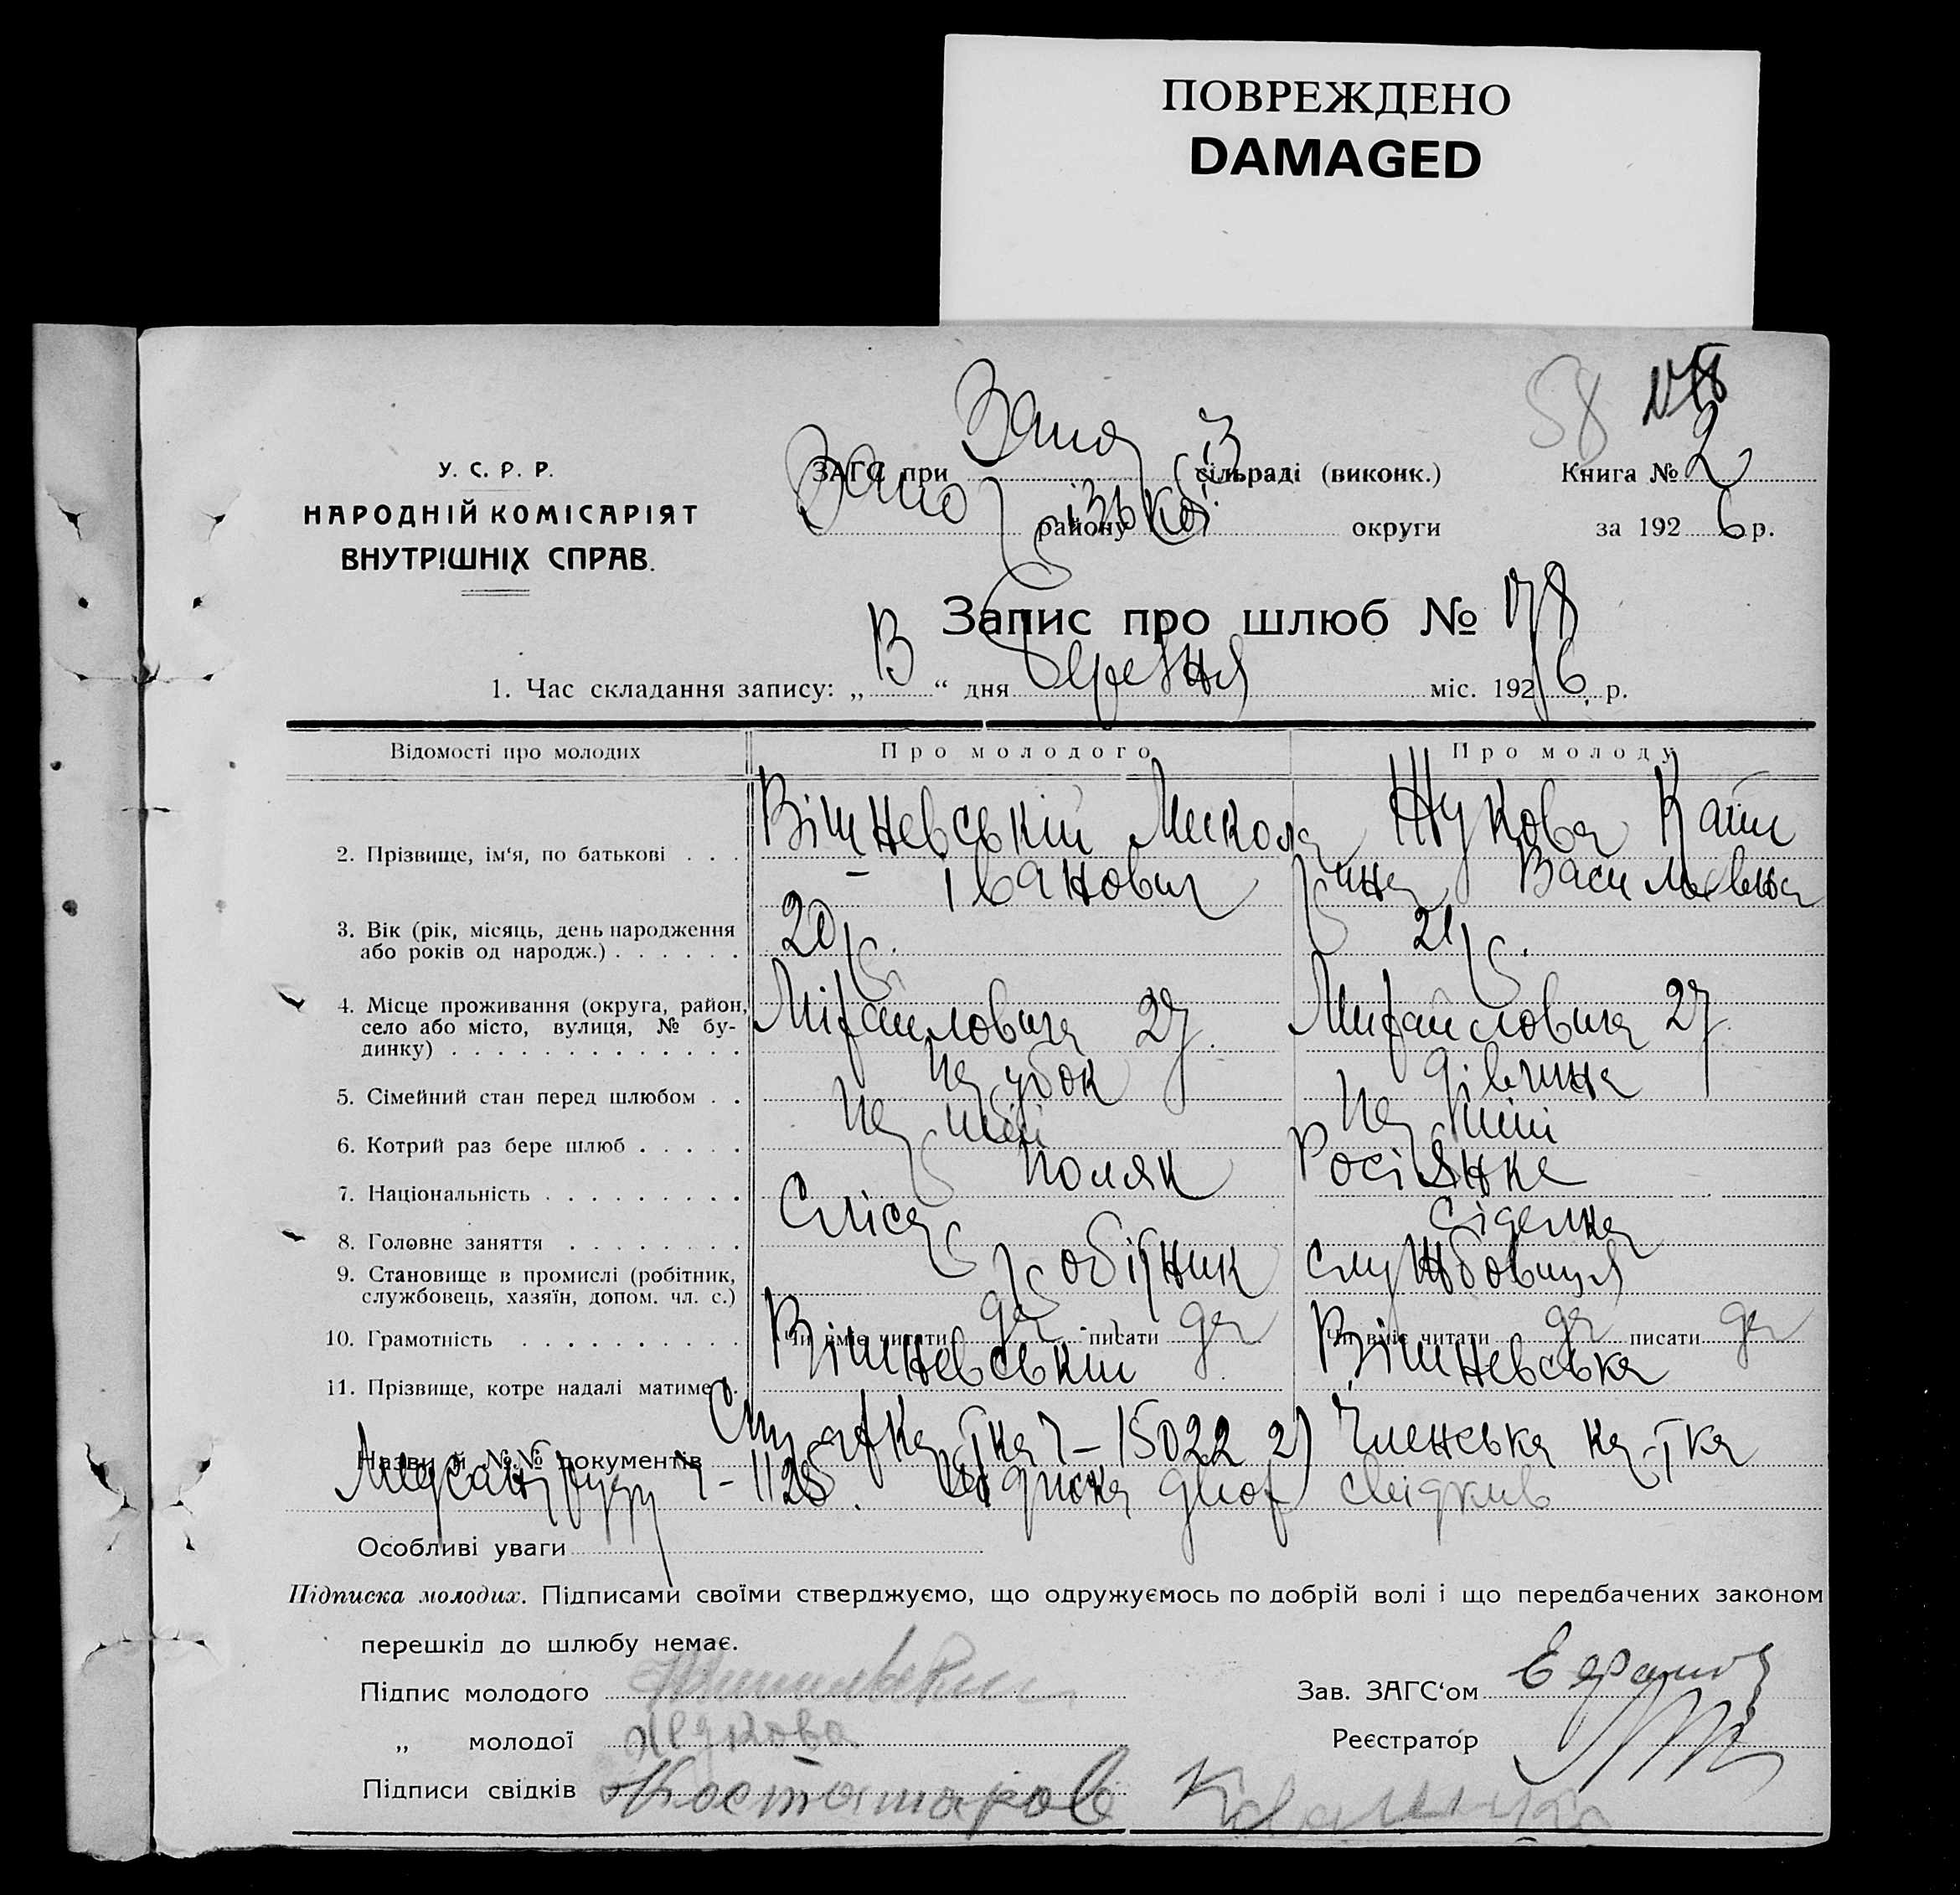 ПОВРЕЖДЕНО
DAMAGED
58
У. С. Р. Р.
НАРОДНІЙ КОМІСАРІЯТ
ВНУТРІШНІХ СПРАВ.
ЗАГС при сільраді (виконк.)
району округи
Книга № 2
за 1926 р.
Запис про шлюб № 178
1. Час складання запису: „ “ дня Березня міс. 1926 р.
Відомості про молодих Про молодого Про молоду
2. Прізвище, ім‘я, по батькові . . . Вішневський Микола Жукова Кате
Іванович рина Васильевна
3. Вік (рік, місяць, день народження
або років од народж.) . . . . . . 20 р. 21 р.
4. Місце проживання (округа, район,
село або місто, вулиця, № бу-
динку) . . . . . . . . . . . . . 27. 27.
5. Сімейний стан перед шлюбом . . парубок дівчина
6. Котрий раз бере шлюб . . . . . перший перший
7. Національність . . . . . . . . . поляк Росіянка
8. Головне заняття . . . . . . . . Слюсар Сіделка
9. Становище в промислі (робітник,
службовець, хазяїн, допом. чл. с.) робітник службовиця
10. Грамотність . . . . . . . . . . Чи вміє читати да писати да Чи вміє читати да писати да
11. Прізвище, котре надалі матиме . Вішневський Вішневська
Назви й №№ документів 15022 2) Членська
1125. Підписка двох свідків
Особливі уваги
Підписка молодих. Підписами своїми стверджуємо, що одружуємось по добрій волі і що передбачених законом
перешкід до шлюбу немає.
Підпис молодого
„ молодої Жукова
Підписи свідків
Зав. ЗАГС‘ом
Реєстратор